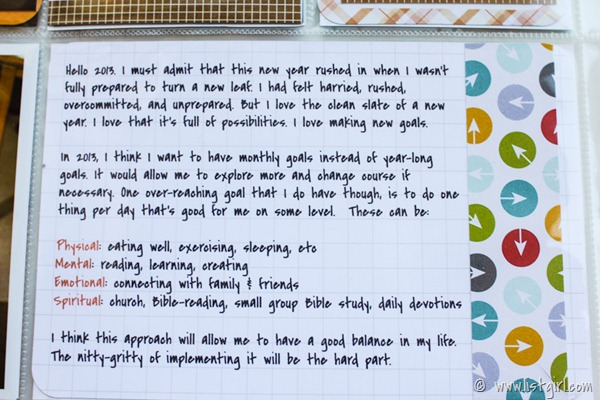 Hello 2013. I must admit that this new year rushed in when I wasn't
fully prepared to turn a new leaf. I had felt harried, rushed,
overcommitted, and unprepared. But I love the clean slate of a new
year. I love that it's full of possibilities. I love making new goals.
In 2013, I think I want to have monthly goals instead of year-long
goals. It would allow me to explore more and change course if
necessary. One over-reaching goal that I do have though, is to do one
thing per day that's good for me on some level. These can be:
Physical: eating well, exercising, sleeping, etc
Mental: reading, learning, creating
Emotional: connecting with family & friends
Spiritual: church, Bible-reading, small group Bible study, daily devotions
I think this approach will allow me to have a good balance in my life.
The nitty-gritty of implementing it will be the hard part.
© www.1stgirl.com